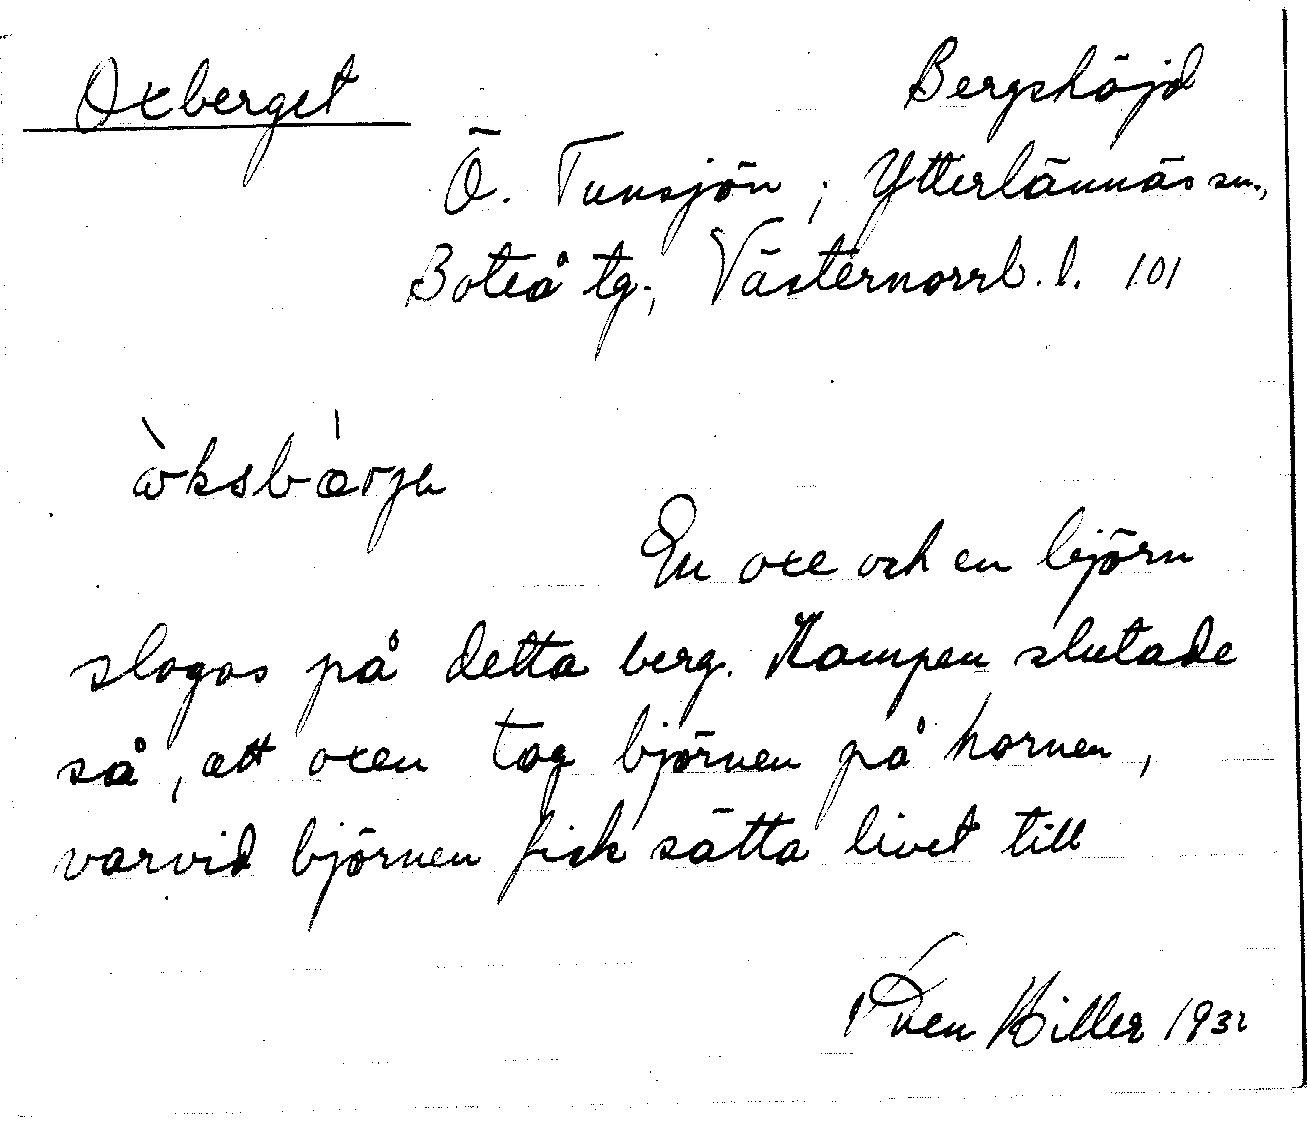 Oxberget
Bergshöjd
Ö. Tunsjön; Ytterlännäs sn.,
Boteå tg., Västernorrl. l. 101
ὼksbærjə
En oxe och en björn
slogos på detta berg. Kampen slutade
så, att oxen tog björnen på hornen,
varvid björnen fick sätta livet till
Sven Hiller 1932